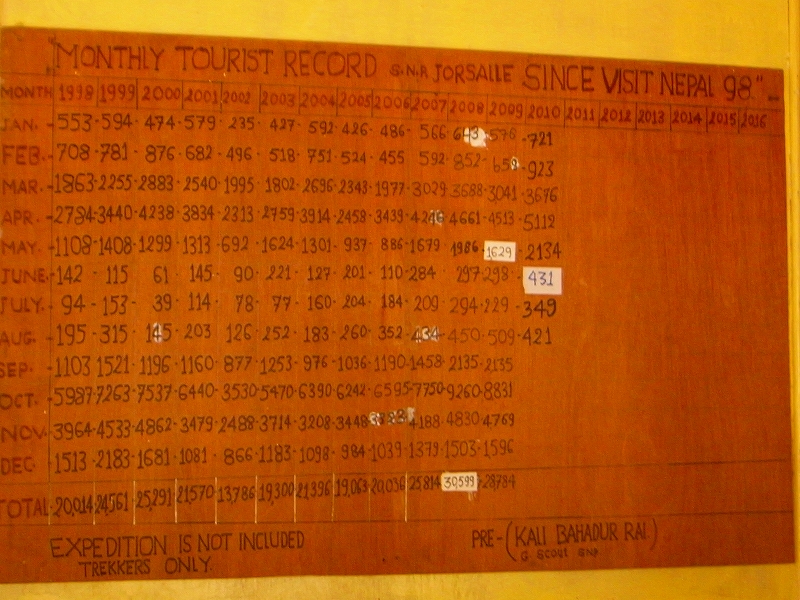 MONTHLY TOURIST RECORD S.N.P JORSALLE SINCE VISIT NEPAL 98"
MONTH 1998 1999 2000 2001 2002 2003 2004 2005 2006 2007 2008 2009 2010 2011 2012 2013 2014 2015 2016
JAN. 553 594 474 579 235 427 592 426 486 566 643 576 721
FEB. 708 781 876 682 496 518 751 524 455 592 852 659 923
MAR. 1863 2255 2883 2540 1995 1802 2696 2343 1977 3029 3688 3041 3676
APR. 2784 3440 4238 3834 2313 2759 3914 2458 3439 4216 4661 4513 5112
MAY. 1108 1408 1299 1313 692 1624 1301 937 886 1679 1986 1629 2134
JUNE 142 115 61 145 90 221 127 201 110 284 297 298 431
JULY. 94 153 39 114 78 77 160 204 184 209 294 229 349
AUG. 195 315 145 203 126 252 183 260 352 434 450 509 421
SEP. 1103 1521 1196 1160 877 1253 976 1036 1190 1458 2135 2135
OCT. 5987 7263 7537 6440 3530 5470 6390 6242 6595 7750 9260 8831
NOV. 3964 4533 4862 3479 2488 3714 3208 3448 4188 4830 4769
DEC. 1513 2183 1681 1081 866 1183 1098 984 1039 1379 1503 1596
TOTAL 20,014 24,561 25,291 21,570 13,786 19,300 21396 19,063 20,036 25,814 30,599 28,784
EXPEDITION IS NOT INCLUDED PRE-(KALI BAHADUR RAI.)
TREKKERS ONLY. G SCOUT SNP